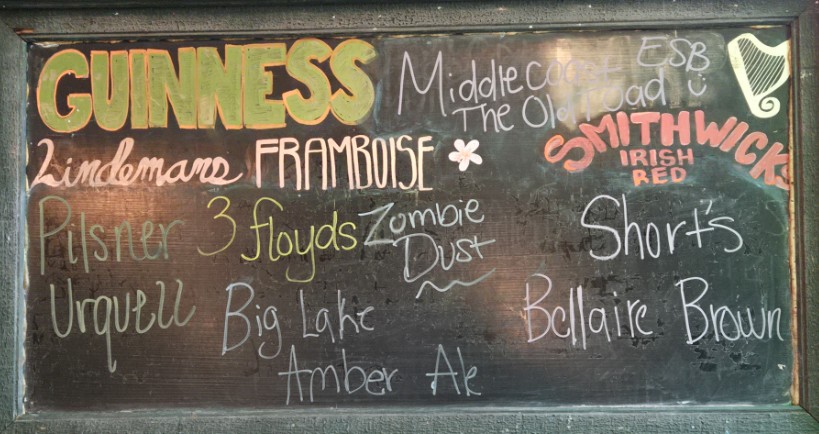 GUINNESS
Middlecoast ESB
The Old Toad
Lindemans FRAMBOISE
SMITHWICKS
IRISH
RED
Pilsner
Urquell
3 floyds Zombie
Dust
Short's
Bellaire Brown
Big Lake
Amber Ale